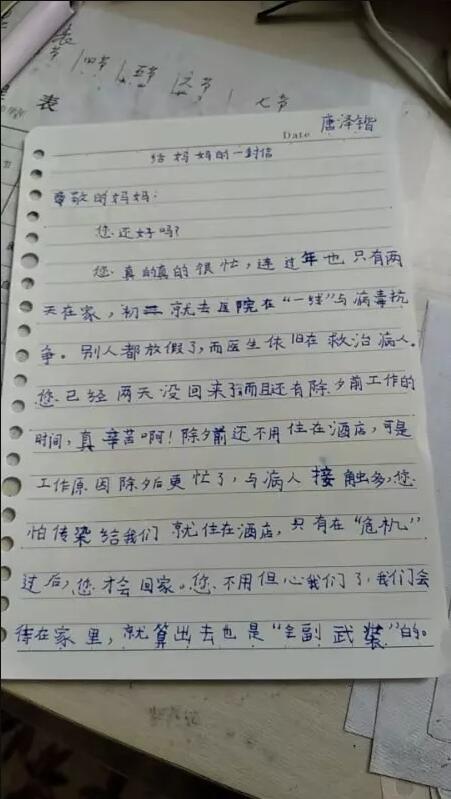 表
节 | 四节 | 五节 | 六节 | 七节
表
Date 唐泽锴
给妈妈的一封信
尊敬的妈妈:
您还好吗?
您真的真的很忙,连过年也只有两
天在家,初二就去医院在“一线”与病毒抗
争。别人都放假了,而医生依旧在救治病人。
您已经两天没回来了而且还有除夕前工作的
时间,真辛苦啊!除夕前还不用住在酒店,可是
工作原因除夕后更忙了,与病人接触多,您
怕传染给我们就住在酒店,只有在“危机”
过后,您才会回家。您不用但心我们了,我们会
待在家里,就算出去也是“全副武装”的。